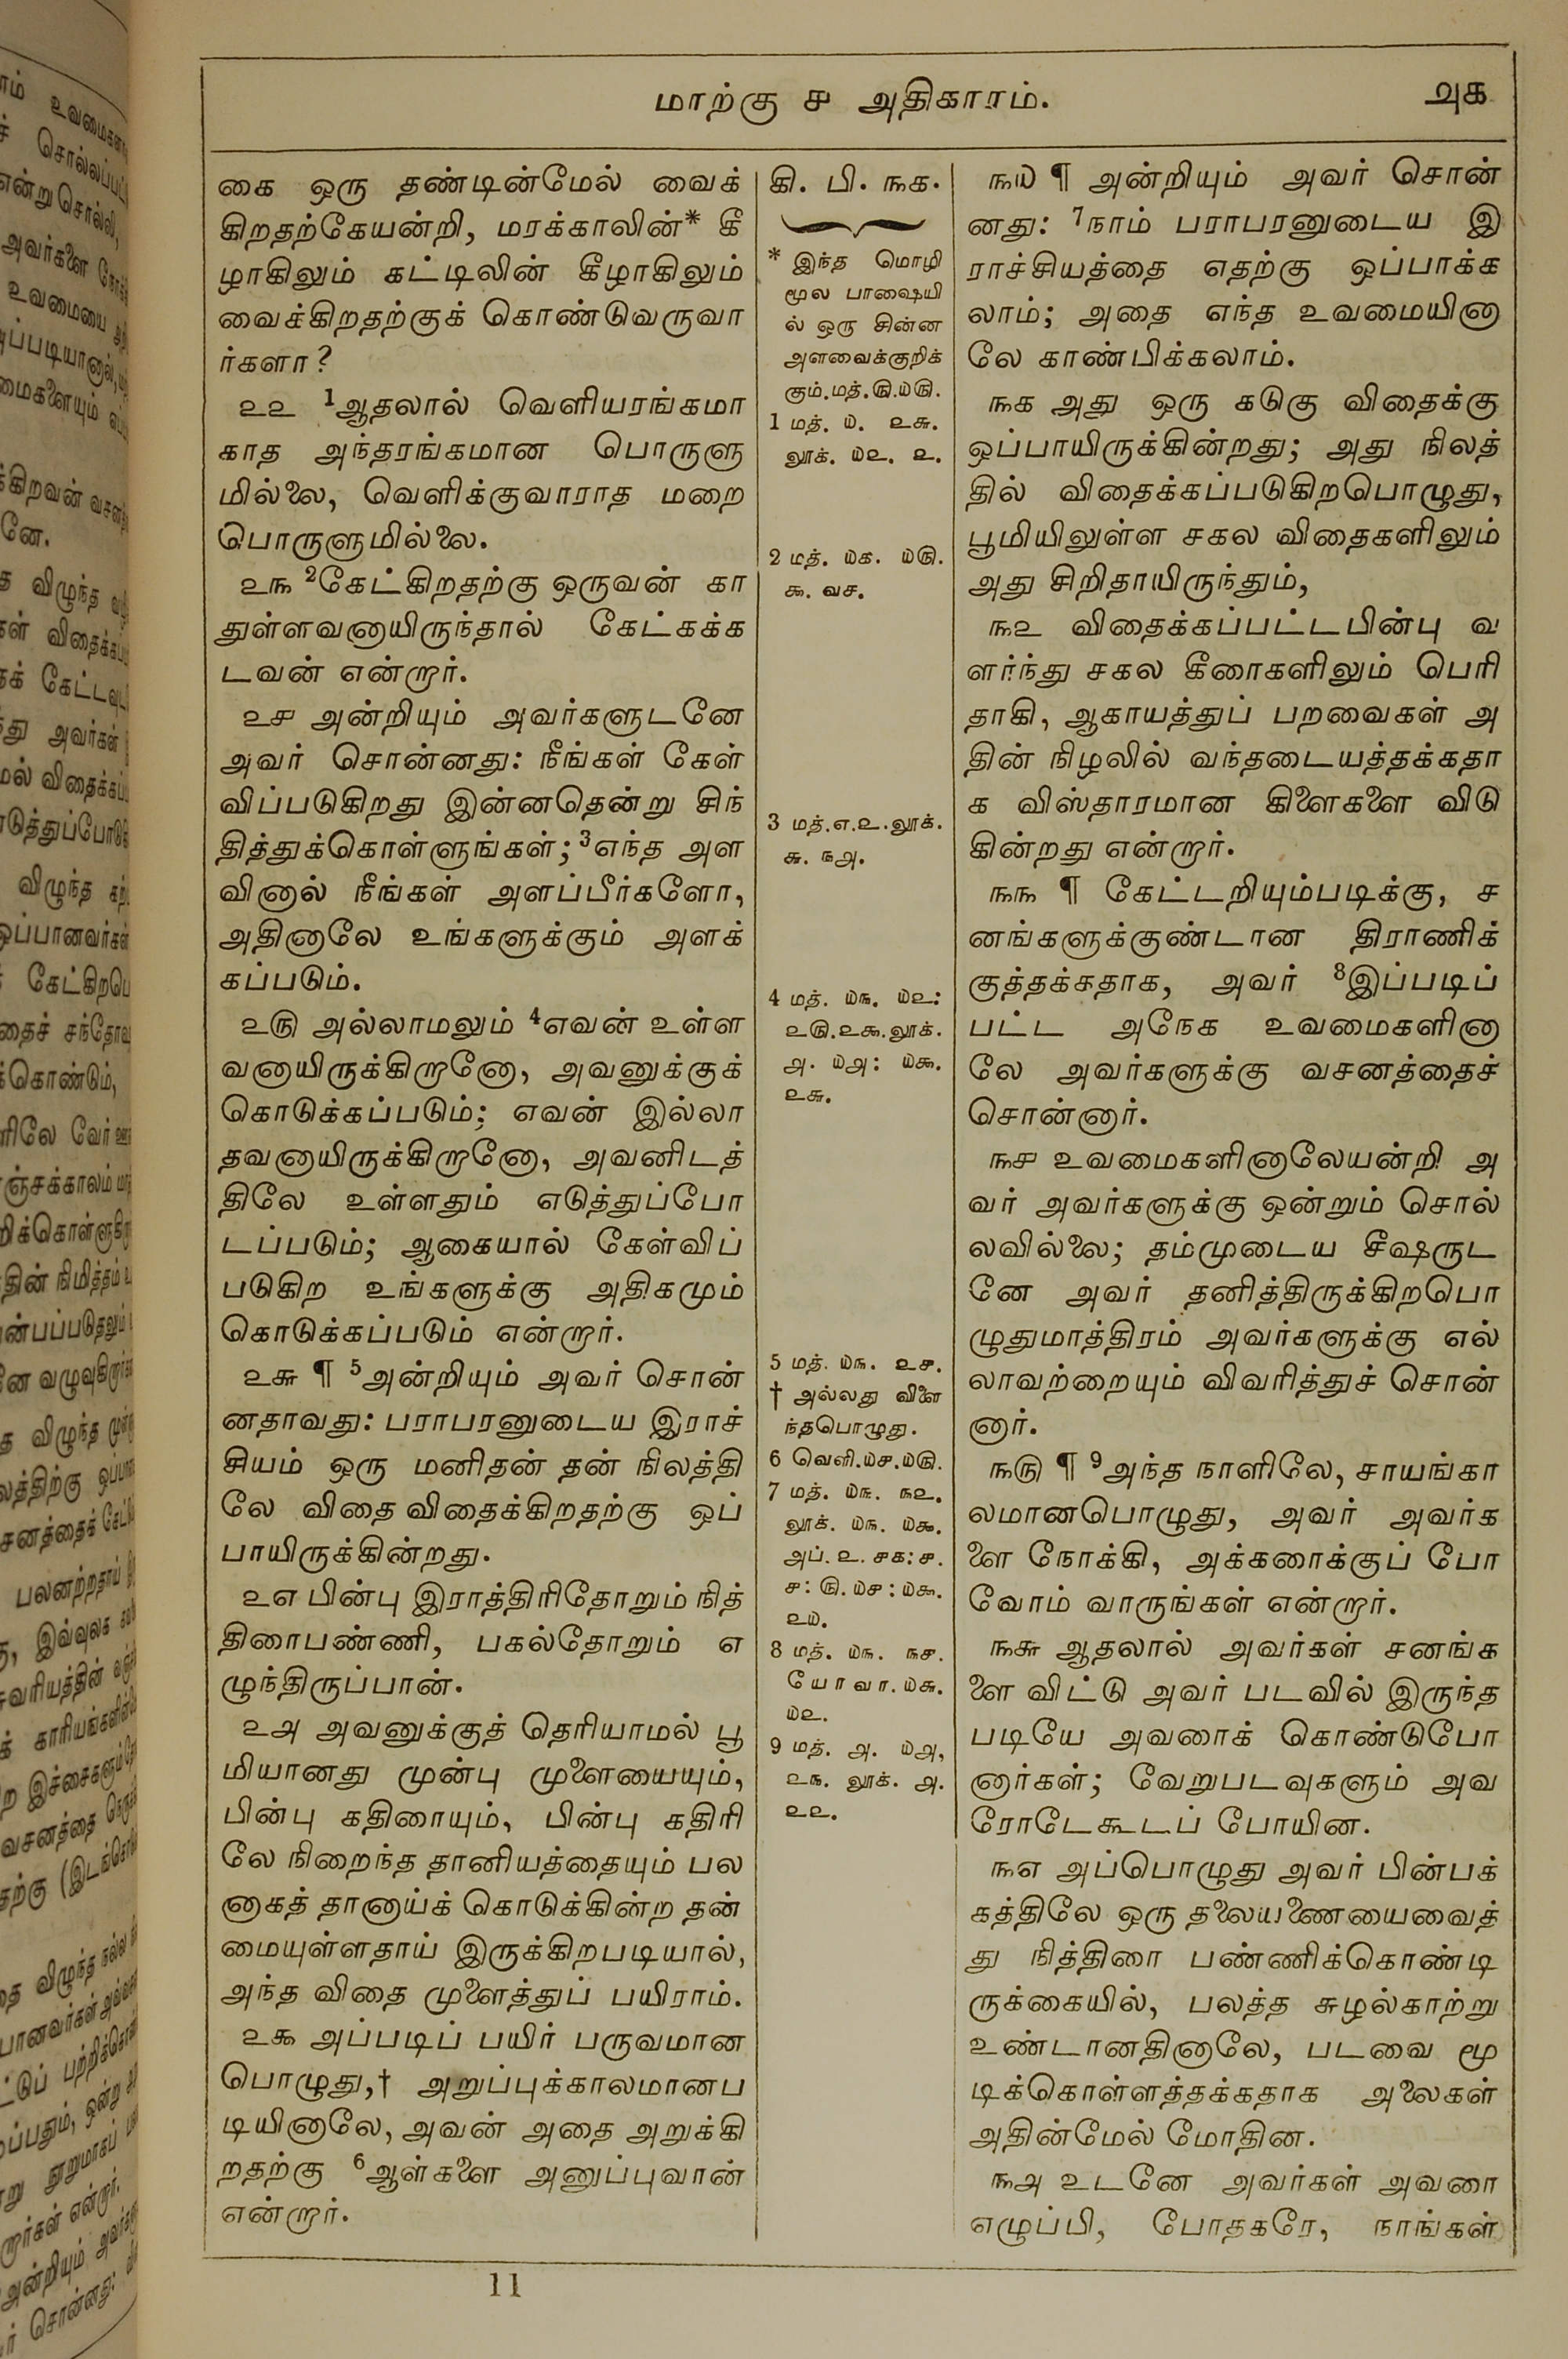 மாற்கு ௪ அதிகாரம்.
௮௧
கை ஒரு தண்டின்மேல் வைக்
கிறதற்கேயன்றி, மரக்காலின்* கீ
ழாகிலும் கட்டிலின் கீழாகிலும்
வைக்கிறதற்குக் கொண்டுவருவா
ர்களா?
௨௨ 1ஆதலால் வெளியரங்கமா
காத அந்தரங்கமான பொருளு
மில்லை, வெளிக்குவாராத மறை
பொருளுமில்லை.
௨௩ 2கேட்கிறதற்கு ஒருவன் கா
துள்ளவனாயிருந்தால் கேட்கக்க
டவன் என்றார்.
௨௪ அன்றியும் அவர்களுடனே
அவர் சொன்னது: நீங்கள் கேள்
விப்படுகிறது இன்னதென்று சிந்
தித்துக்கொள்ளுங்கள்; 3எந்த அள
வினால் நீங்கள் அளப்பீர்களோ,
அதினாலே உங்களுக்கும் அளக்
கப்படும்.
௨௫ அல்லாமலும் 4எவன் உள்ள
வனாயிருக்கிறானோ, அவனுக்குக்
கொடுக்கப்படும்; எவன் இல்லா
தவனாயிருக்கிறானோ, அவனிடத்
திலே உள்ளதும் எடுத்துப்போ
டப்படும்; ஆகையால் கேள்விப்
படுகிற உங்களுக்கு அதிகமும்
கொடுக்கப்படும் என்றார்.
௨௬ ¶ 5அன்றியும் அவர் சொன்
னதாவது: பராபரனுடைய இராச்
சியம் ஒரு மனிதன் தன் நிலத்தி
லே விதை விதைக்கிறதற்கு ஒப்
பாயிருக்கின்றது.
௨௭ பின்பு இராத்திரிதோறும் நித்
திரைபண்ணி, பகல்தோறும் எ
ழுந்திருப்பான்.
௨௮ அவனுக்குத் தெரியாமல் பூ
மியானது முன்பு முளையையும்,
பின்பு கதிரையும், பின்பு கதிரி
லே நிறைந்த தானியத்தையும் பல
னாகத் தானாய்க் கொடுக்கின்ற தன்
மையுள்ளதாய் இருக்கிறபடியால்,
அந்த விதை முளைத்துப் பயிராம்.
௨௯ அப்படிப் பயிர் பருவமான
பொழுது,† அறுப்புக்காலமானப
டியினாலே, அவன் அதை அறுக்கி
றதற்கு 6ஆள்களை அனுப்புவான்
என்றார்.
கி. பி. ௩௧.
* இந்த மொழி
மூல பாஷையி
ல் ஒரு சின்ன
அளவைக்குறிக்
கும்.மத்.௫.௰௫.
1 மத். ௰. ௨௬.
லூக். ௰௨. ௨.
2 மத். ௰௧. ௰௫.
௯. வச.
3 மத்.௭.௨.லூக்.
௬. ௩௮.
4 மத். ௰௩. ௰௨:
௨௫.௨௯.லூக்.
௮. ௰௮: ௰௯.
௨௬.
5 மத். ௰௩. ௨௪.
† அல்லது விளை
ந்தபொழுது.
6 வெளி.௰௪.௰௫.
7 மத். ௰௩. ௩௨.
லூக். ௰௩. ௰௯.
அப். ௨. ௪௧: ௪.
௪: ௫. ௰௪: ௰௯.
௨௰.
8 மத். ௰௩. ௩௪.
யோவா.௰௬.
௰௨.
9 மத். ௮. ௰௮,
௨௩. லூக். ௮.
௨௨.
௩௰ ¶ அன்றியும் அவர் சொன்
னது: 7நாம் பராபரனுடைய இ
ராச்சியத்தை எதற்கு ஒப்பாக்க
லாம்; அதை எந்த உவமையினா
லே காண்பிக்கலாம்.
௩௧ அது ஒரு கடுகு விதைக்கு
ஒப்பாயிருக்கின்றது; அது நிலத்
தில் விதைக்கப்படுகிறபொழுது,
பூமியிலுள்ள சகல விதைகளிலும்
அது சிறிதாயிருந்தும்,
௩௨ விதைக்கப்பட்டபின்பு வ
ளர்ந்து சகல கீரைகளிலும் பெரி
தாகி, ஆகாயத்துப் பறவைகள் அ
தின் நிழலில் வந்தடையத்தக்கதா
க விஸ்தாரமான கிளைகளை விடு
கின்றது என்றார்.
௩௩ ¶ கேட்டறியும்படிக்கு, ச
னங்களுக்குண்டான திராணிக்
குத்தக்கதாக, அவர் 8இப்படிப்
பட்ட அநேக உவமைகளினா
லே அவர்களுக்கு வசனத்தைச்
சொன்னார்.
௩௪ உவமைகளினாலேயன்றி அ
வர் அவர்களுக்கு ஒன்றும் சொல்
லவில்லை; தம்முடைய சீஷருட
னே அவர் தனித்திருக்கிறபொ
ழுதுமாத்திரம் அவர்களுக்கு எல்
லாவற்றையும் விவரித்துச் சொன்
னார்.
௩௫ ¶ 9அந்த நாளிலே, சாயங்கா
லமானபொழுது, அவர் அவர்க
ளை நோக்கி, அக்கரைக்குப் போ
வோம் வாருங்கள் என்றார்.
௩௬ ஆதலால் அவர்கள் சனங்க
ளை விட்டு அவர் படவில் இருந்த
படியே அவரைக் கொண்டுபோ
னார்கள்; வேறுபடவுகளும் அவ
ரோடேகூடப் போயின.
௩௭ அப்பொழுது அவர் பின்பக்
கத்திலே ஒரு தலையணையைவைத்
து நித்திரை பண்ணிக்கொண்டி
ருக்கையில், பலத்த சுழல்காற்று
உண்டானதினாலே, படவை மூ
டிக்கொள்ளத்தக்கதாக அலைகள்
அதின்மேல் மோதின.
௩௮ உடனே அவர்கள் அவரை
எழுப்பி, போதகரே, நாங்கள்
11